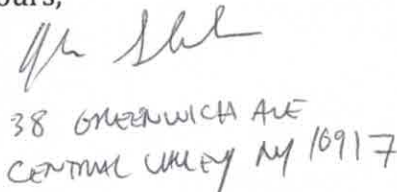 ours,
38 GREENWICH AVE
CENTRAL VALLEY NY 10917